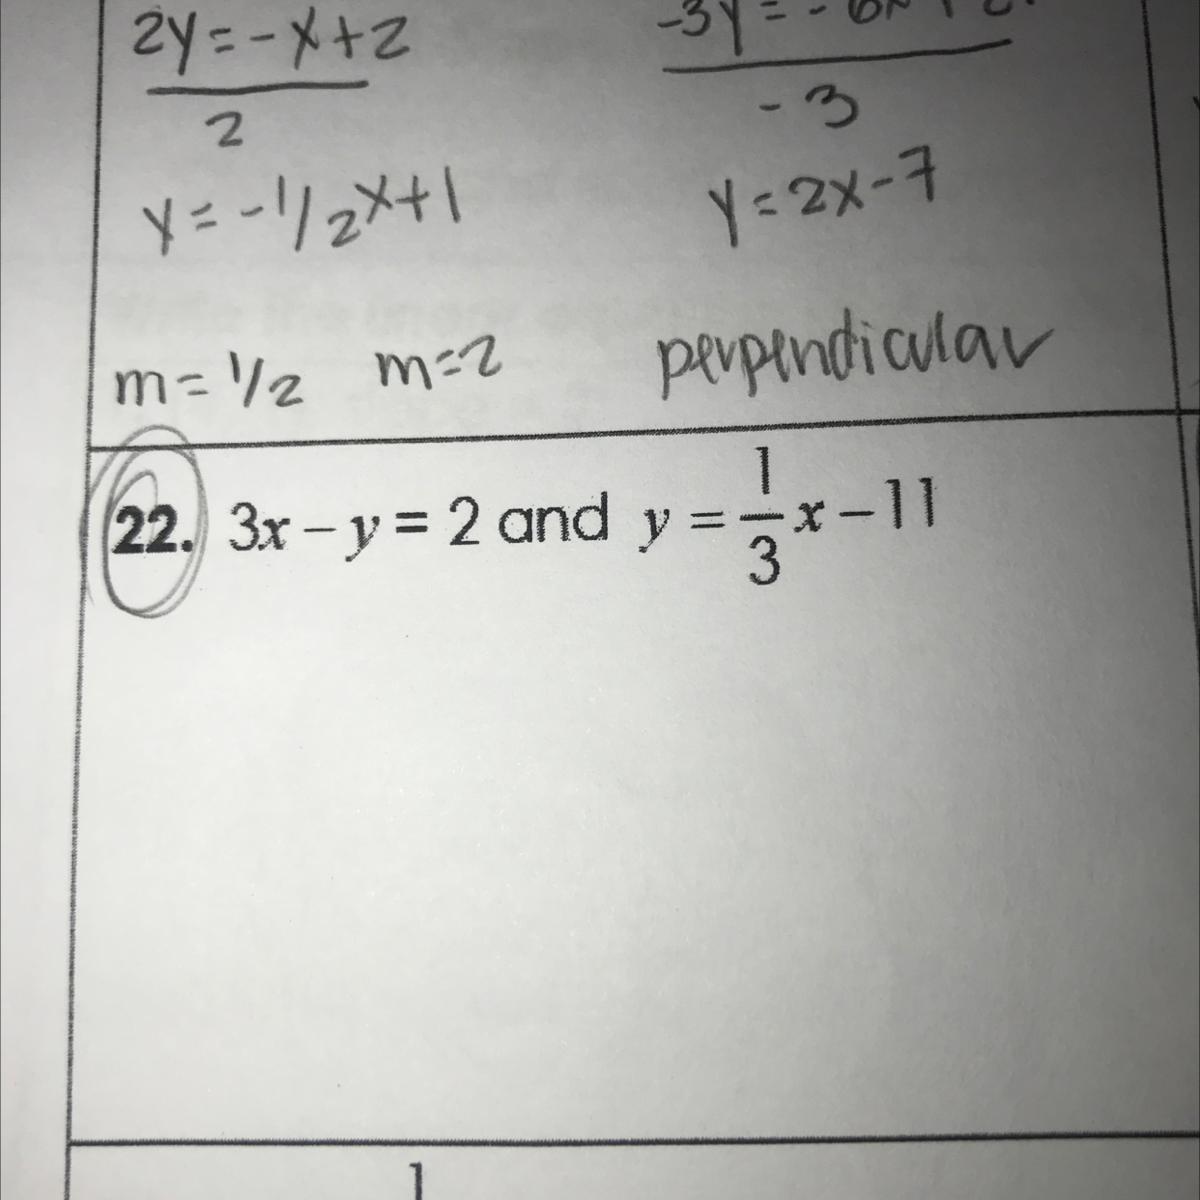 2y=-x+2
2
-3y=-6x+2
-3
y=-1/2x+1
y=2x-7
m=1/2 m=2 perpendicular
22. 3x-y=2 and y=1/3x-11
1